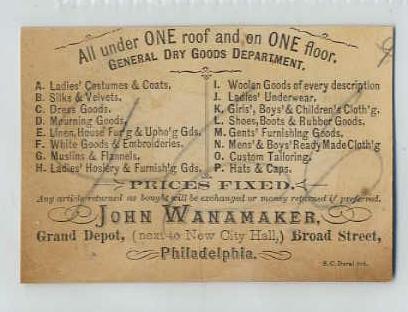 All under ONE roof and on ONE floor.
GENERAL DRY GOODS DEPARTMENT.
A. Ladies' Costumes & Coats,
B. Silks & Velvets.
C. Dress Goods.
D. Mourning Goods.
E. Linen, House Fur'g & Upho'g Gds.
F. White Goods & Embroideries.
G. Muslins & Flannels.
H. Ladies' Hosiery & Furnish'g Gds.
I. Woolen Goods of every description
J. Ladies' Underwear.
K. Girls', Boys' & Children's Cloth'g.
L. Shoes, Boots & Rubber Goods.
M. Gents' Furnishing Goods.
N. Mens' & Boys' Ready Made Cloth'g
O. Custom Tailoring.
P. Hats & Caps.
PRICES FIXED.
Any article returned as bought will be exchanged or money returned if preferred.
JOHN WANAMAKER,
Grand Depot, (next to New City Hall,) Broad Street,
Philadelphia.